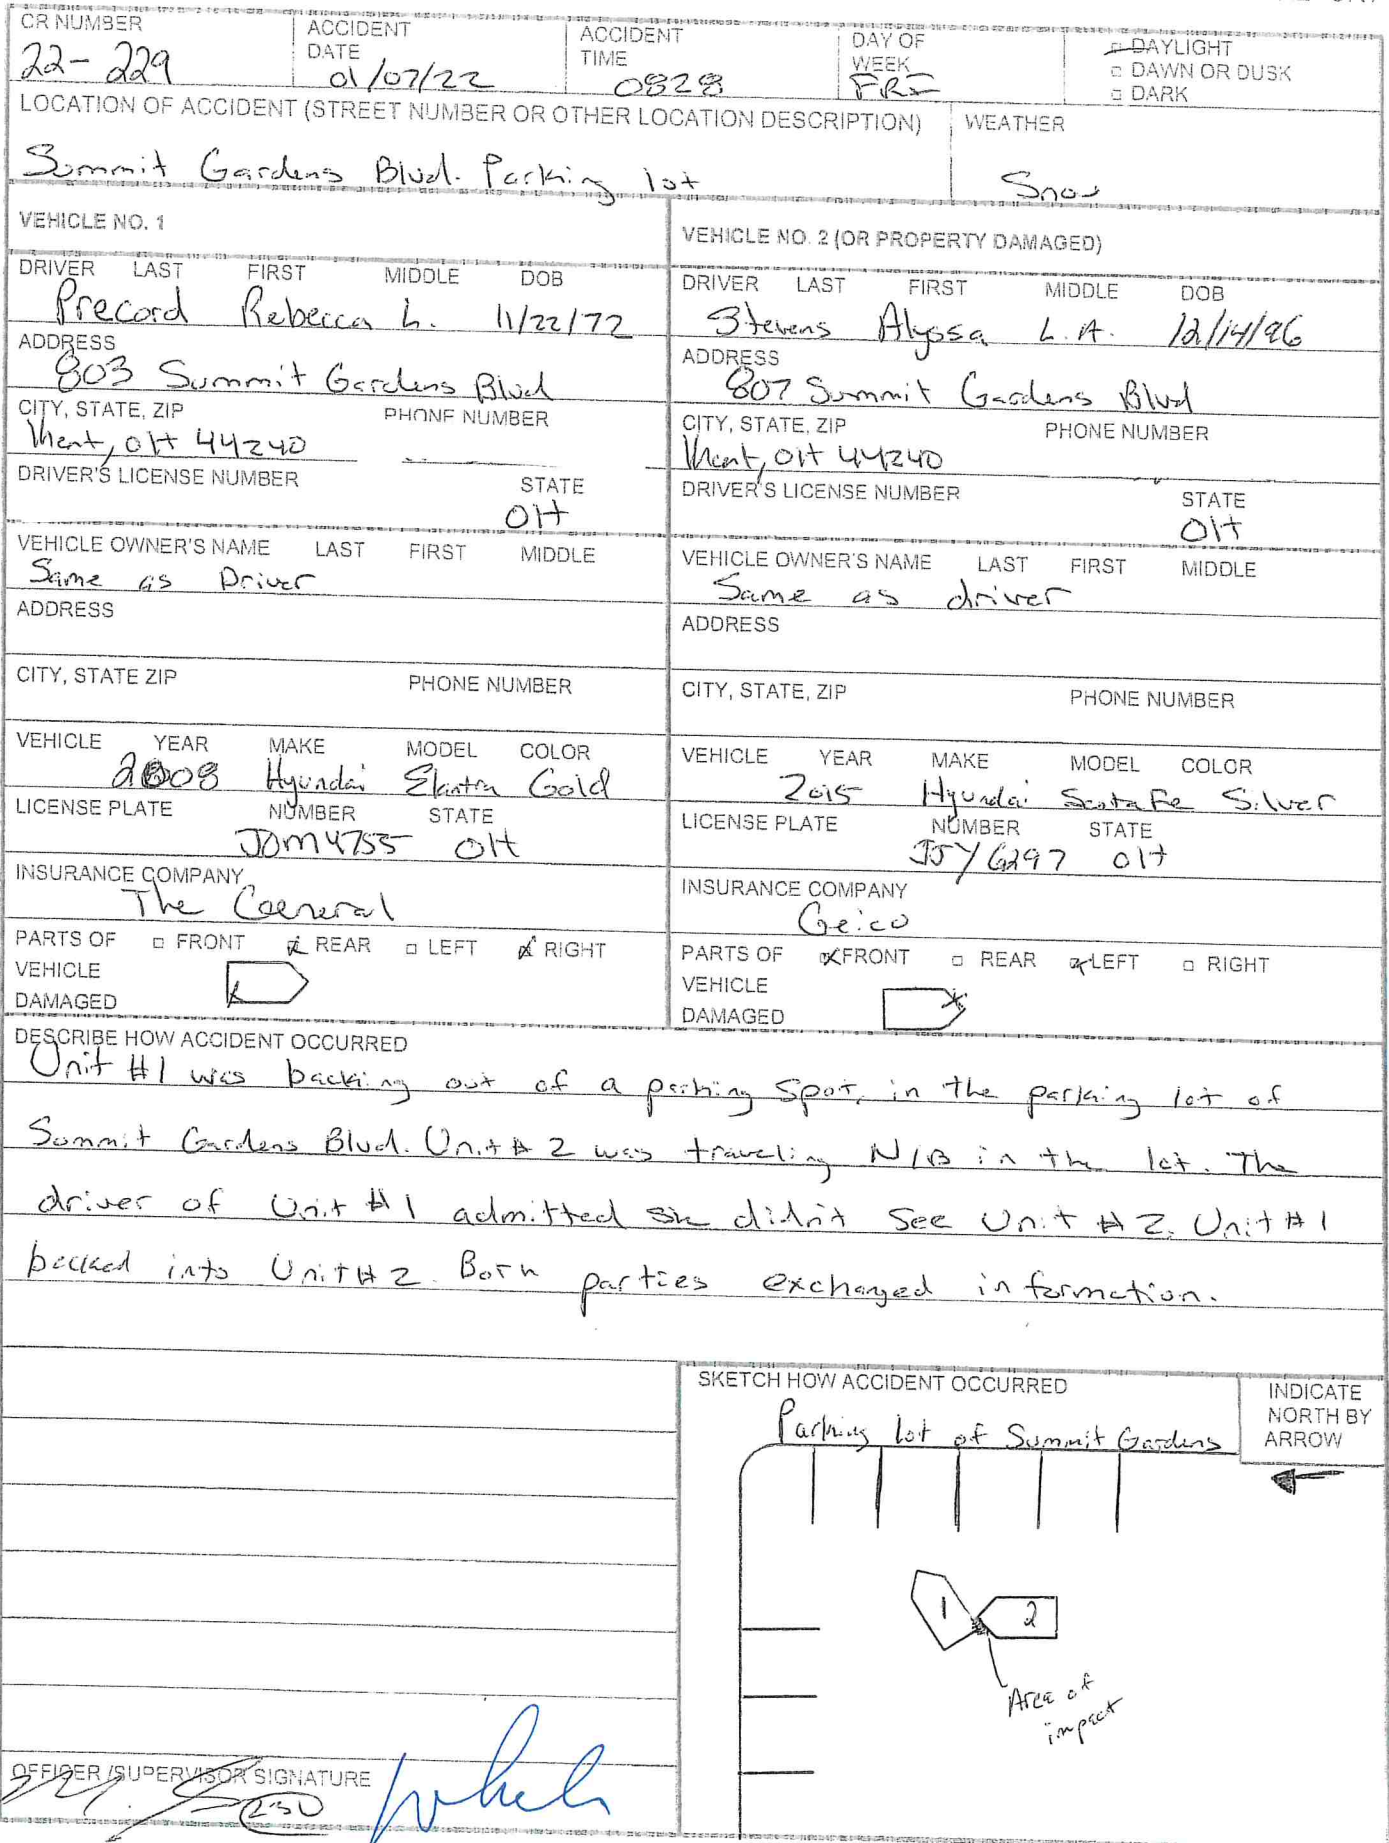 CR NUMBER ACCIDENT DATE ACCIDENT TIME DAY OF WEEK DAYLIGHT
22-229 01/07/22 0828 FRI DAWN OR DUSK
DARK
LOCATION OF ACCIDENT (STREET NUMBER OR OTHER LOCATION DESCRIPTION) WEATHER
Summit Gardens Blvd. Parking lot Snow
VEHICLE NO. 1
DRIVER LAST FIRST MIDDLE DOB
Precord Rebecca L. 11/22/72
ADDRESS
803 Summit Gardens Blvd
CITY, STATE, ZIP PHONE NUMBER
Kent, OH 44240
DRIVER'S LICENSE NUMBER STATE
OH
VEHICLE OWNER'S NAME LAST FIRST MIDDLE
Same as Driver
ADDRESS
CITY, STATE ZIP PHONE NUMBER
VEHICLE YEAR MAKE MODEL COLOR
2008 Hyundai Elantra Gold
LICENSE PLATE NUMBER STATE
JDM4755 OH
INSURANCE COMPANY
The General
PARTS OF FRONT REAR LEFT RIGHT
VEHICLE
DAMAGED
VEHICLE NO. 2 (OR PROPERTY DAMAGED)
DRIVER LAST FIRST MIDDLE DOB
Stevens Alyssa L.A. 12/14/96
ADDRESS
807 Summit Gardens Blvd
CITY, STATE, ZIP PHONE NUMBER
Kent, OH 44240
DRIVER'S LICENSE NUMBER STATE
OH
VEHICLE OWNER'S NAME LAST FIRST MIDDLE
Same as driver
ADDRESS
CITY, STATE, ZIP PHONE NUMBER
VEHICLE YEAR MAKE MODEL COLOR
2015 Hyundai Santa Fe Silver
LICENSE PLATE NUMBER STATE
JJY6297 OH
INSURANCE COMPANY
Geico
PARTS OF FRONT REAR LEFT RIGHT
VEHICLE
DAMAGED
DESCRIBE HOW ACCIDENT OCCURRED
Unit #1 was backing out of a parking spot, in the parking lot of
Summit Gardens Blvd. Unit # 2 was traveling N/B in the lot. The
driver of Unit #1 admitted she didn't see Unit # 2. Unit #1
backed into Unit # 2. Both parties exchanged information.
SKETCH HOW ACCIDENT OCCURRED
INDICATE
NORTH BY
ARROW
Parking lot of Summit Gardens
1 2
Area of
impact
OFFICER /SUPERVISOR SIGNATURE
230